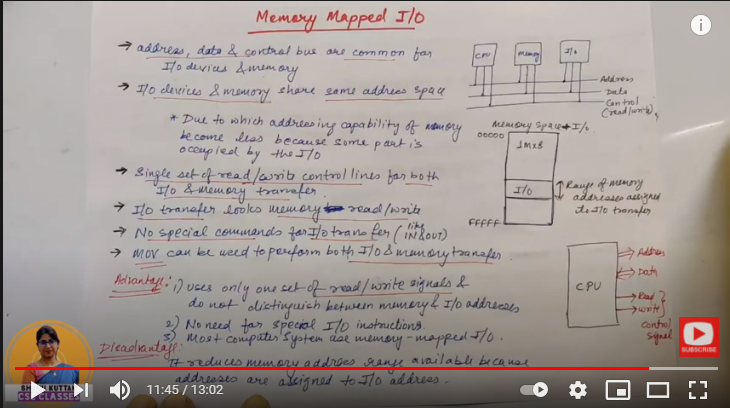 Memory Mapped I/O
→ address, data & control bus are common for
I/O devices & memory
→ I/O devices & memory share same address space
* Due to which addressing capability of memory
become less because some part is
occupied by the I/O
→ Single set of read/write control lines for both
I/O & memory transfer.
→ I/O transfer looks memory read/write
→ No special commands for I/O transfer (like IN & OUT)
→ MOV can be used to perform both I/O & memory transfer.
Advantage: 1) Uses only one set of read/write signals &
do not distinguish between memory & I/O addresses
2) No need for special I/O instructions.
3) Most computer system use memory-mapped I/O.
Disadvantage:
It reduces memory address range available because
addresses are assigned to I/O address.
CPU
Memory
I/O
Address
Data
Control
(read/write)
Memory Space + I/O
00000
1M x 8
I/O
FFFFF
Range of memory
addresses assigned
to I/O transfer
CPU
Address
Data
Read
Write
control
signal
SUBSCRIBE
KUTTAN
CSE CLASSES
11:45 / 13:02